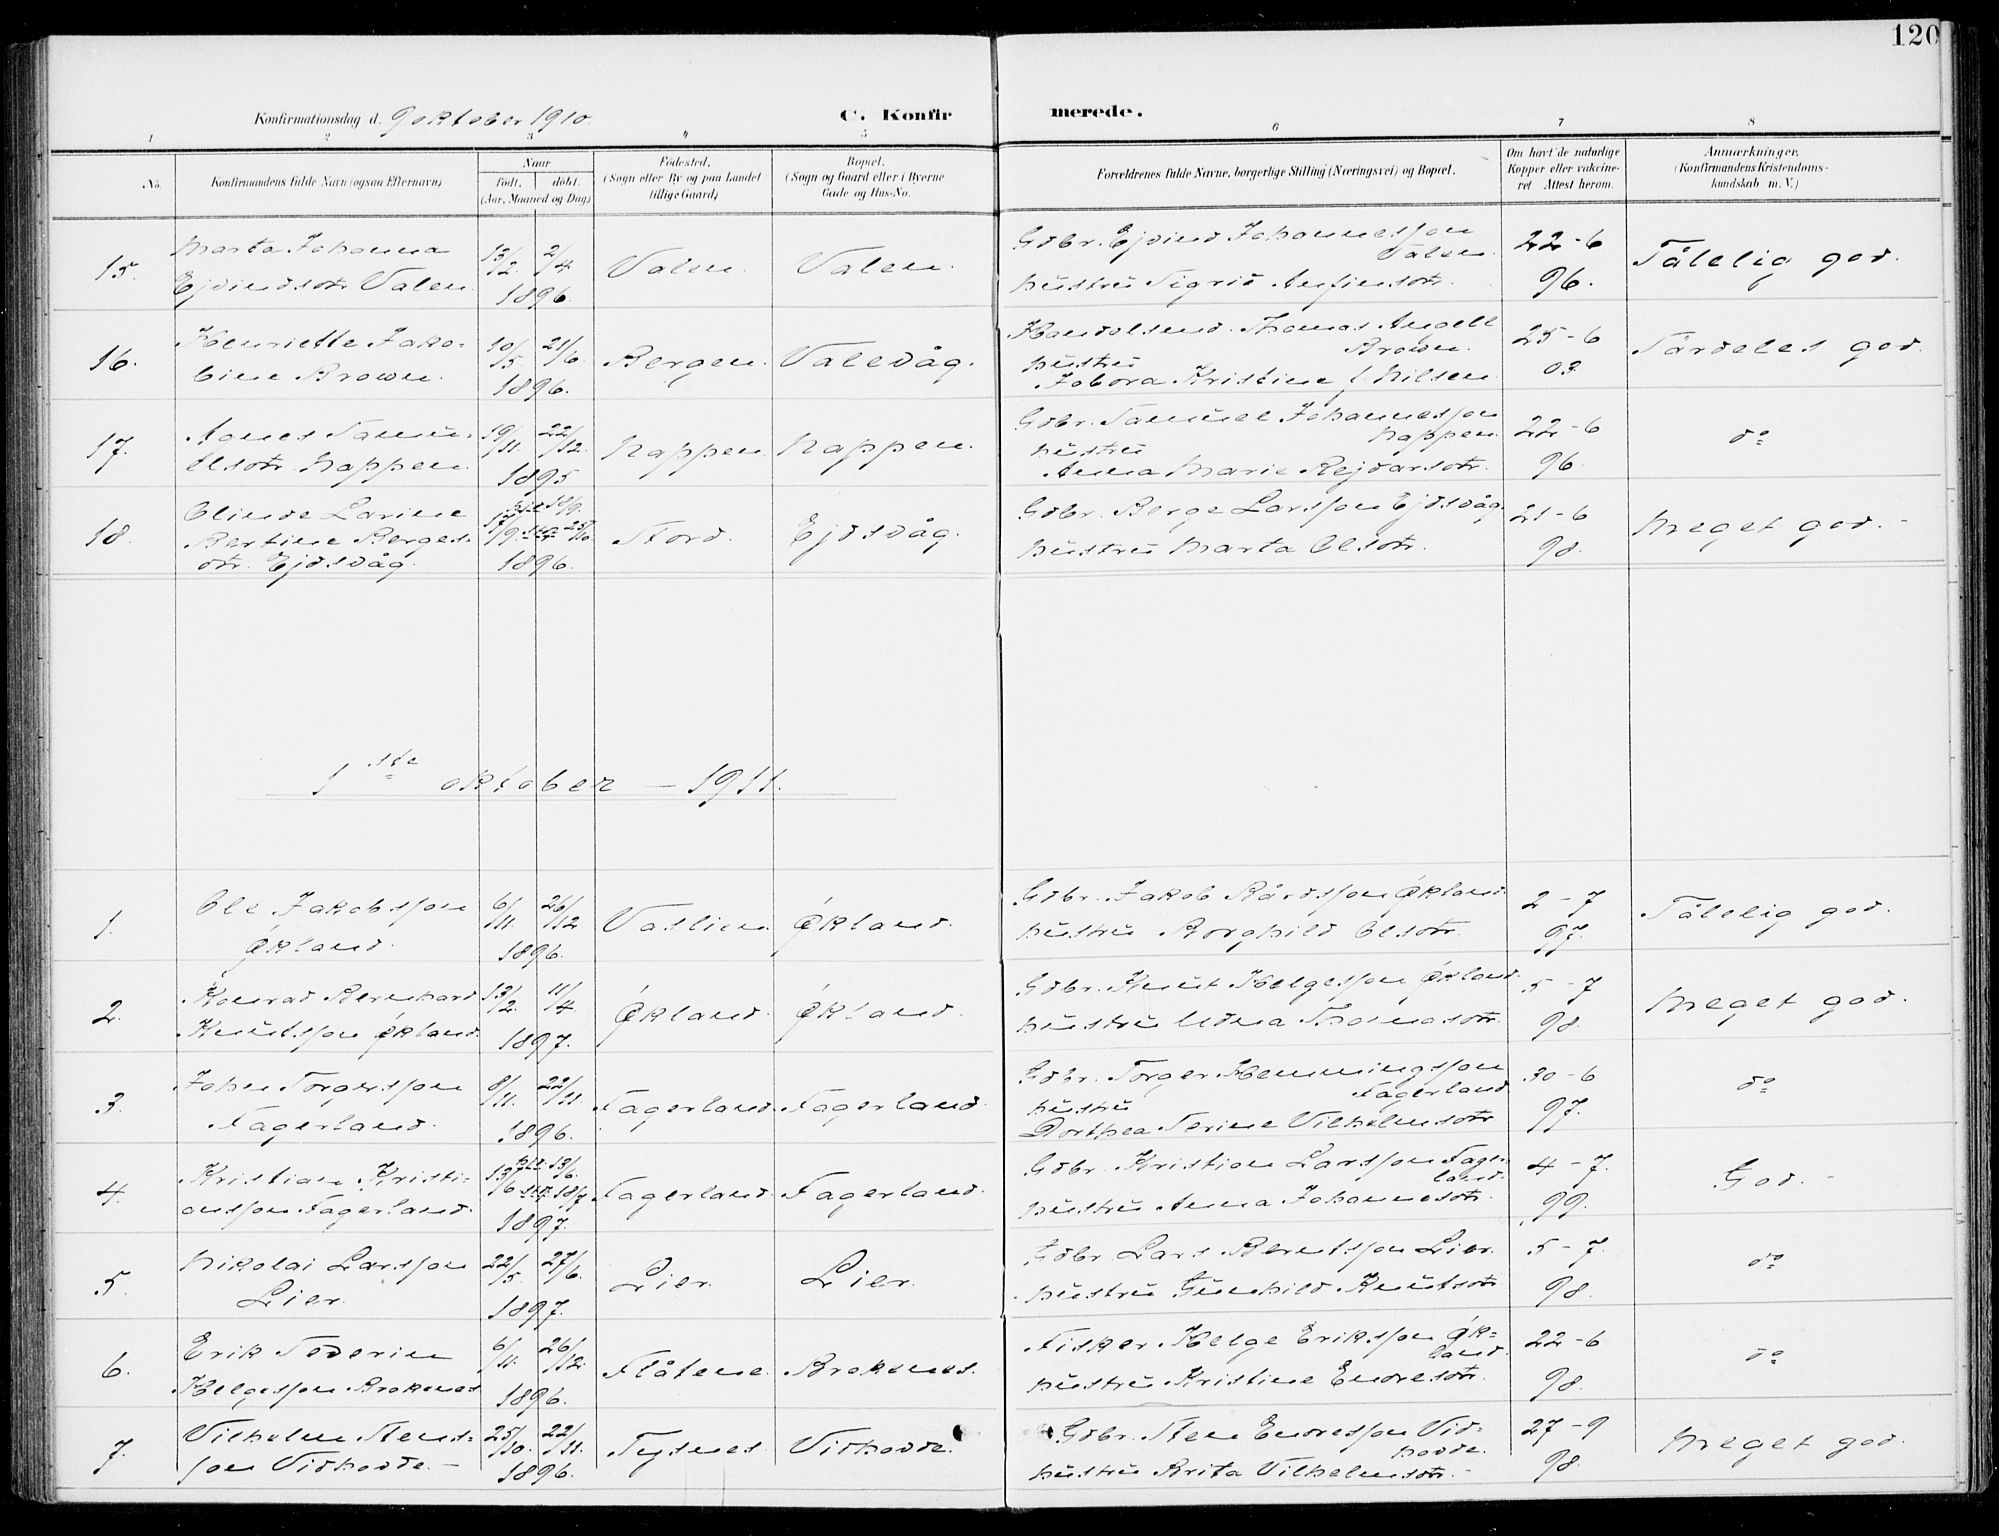 120
Konfirmationsdag d. 9 oktober 1910.
C. Konfirmerede.
1 2 3 4 5 6 7 8
No. Konfirmandens fulde Navn (ogsaa Efternavn)
Naar
Født. døbt.
(Aar, Maaned og Dag)
Fødested.
(Sogn eller By og paa Landet
tillige Gaard)
Bopæl.
(Sogn og Gaard eller i Byerne
Gade og Hus-No.
Forældrenes fulde Navne, borgerlige Stilling (Næringsvei) og Bopæl.
Om havt de naturlige
Kopper eller vakcine-
ret. Attest herom.
Anmærkninger.
(Konfirmandens Kristendoms-
kundskab m. V.)
15. Marta Johanna
Ejvindsdtr Valen.
13/2. 2/4
1896.
Valen. Valen.
Gdbr. Ejvind Johannesson
Valen.
hustru Sigrid Anfinsdtr.
22-6
96.
Tålelig god.
16. Henriette Jako-
bine Brown.
10/5. 21/6.
1896.
Bergen. Valevåg.
Handelsmd. Thomas Angell
Brown.
hustru
Jobora Kristine f. Nilsen.
25-6
03.
Særdeles god.
17. Agnes Samu-
elsdtr. Nappen.
19/11. 22/12.
1895
Nappen. Nappen.
Gdbr. Samuel Johannesson
Nappen.
hustru
Anna Marie Rejdarsdtr.
22-6
96.
do
18. Olinde Larine
Bertine Berges-
dtr. Ejdsvåg.
17/9. hjd 18/9.
stf. 25/10
1896.
Stord. Ejdsvåg.
Gdbr. Berge Larsson Ejdsvåg
hustru Marta Olsdtr.
21-6
98.
Meget god. -
1ste oktober - 1911.
1. Ole Jakobsson
Økland.
6/11. 26/12
1896.
Vaslien. Økland.
Gdbr. Jakob Bårdsson Økland.
hustru Borghild Olsdtr.
2-7
97.
Tålelig god.
2. Konrad Bernhard
Knutsson Økland.
13/2. 11/4.
1897.
Økland. Økland.
Gdbr. Knut Helgesson Økland.
hustru Udna Thomasdtr.
5-7
98.
Meget god.
3. John Torgersson
Fagerland.
8/11. 22/11.
1896.
Fagerland. Fagerland.
Gdbr. Torger Henningsson
Fagerland
hustru
Dorthea Serine Vilhelmsdtr.
30-6
97.
do
4. Kristian Kristi-
ansson Fagerland.
13/6 hjd. 13/6.
stf. 18/7
1897.
Fagerland. Fagerland.
Gdbr. Kristian Larsson Fager-
land.
hustru Anna Johannesdtr.
4-7.
99.
God. -
5. Nikolai Larsson
Lier.
22/5. 27/6.
1897.
Lier. Lier.
Gdbr. Lars Berentsson Lier.
hustru Gunhild Knutsdtr
5-7.
98.
do
6. Erik Severin
Helgesson Brokenes
6/11. 26/12.
1896.
Flåtene. Brokenes.
Fisker Helge Eriksson Øk-
land.
hustru Kristine Endresdtr.
22-6
98.
do
7. Vilhelm Stens-
son Vidhovde. -
25/10. 22/11.
1896.
Tysnes. Vidhovde.
Gdbr. Sten Endresson Vid-
hovde.
hustru Brita Vilhelmsdtr. -
27-9
98.
Meget god.